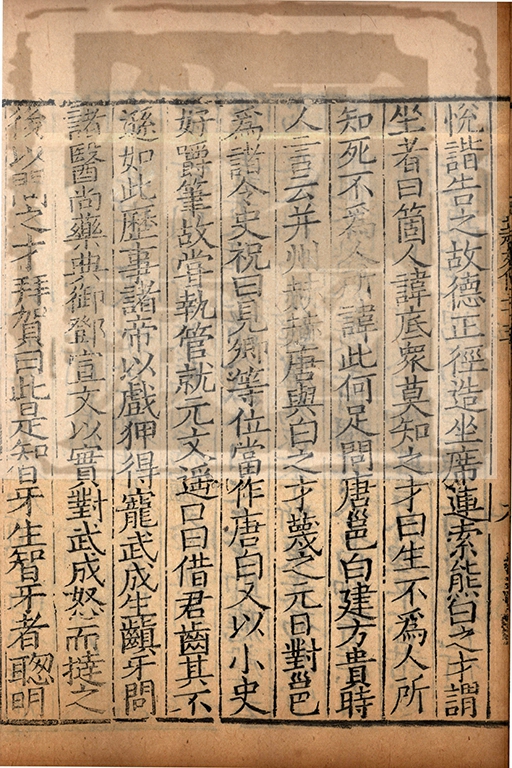 悅諧告之故德正徑造坐席連索熊白之才謂
坐者曰箇人諱底衆莫知之才曰生不爲人所
知死不爲人所諱此何足問唐邕白建方貴時
人言云并州赫赫唐與白之才蔑之元日對邕
爲諸令史祝曰見卿等位當作唐白又以小史
好嚼筆故嘗執管就元文遥口曰借君齒其不
遜如此歷事諸帝以戲狎得寵武成生齻牙問
諸醫尚藥典御鄧宣文以實對武成怒而撻之
後以問之才拜賀曰此是智牙生智牙者聦明